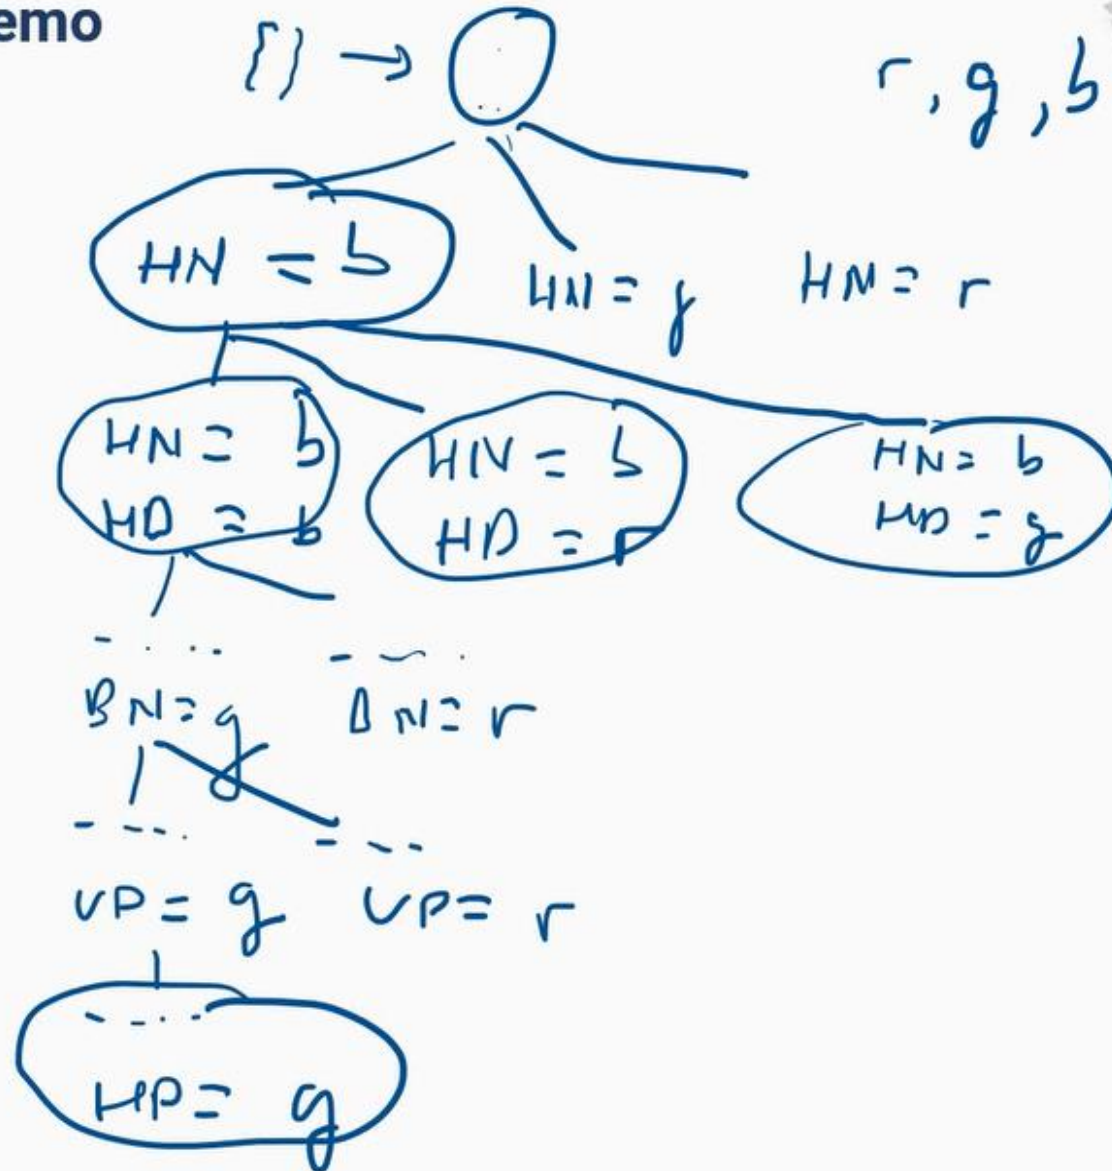 emo
{} → r, g, b
HN = b
HN = g HN = r
HN = b HN = b HN = b
HD = b HD = r HD = g
- . . . - ~ .
BN = g BN = r
- - - - . - - - -
VP = g VP = r
- - . - .
HP = g